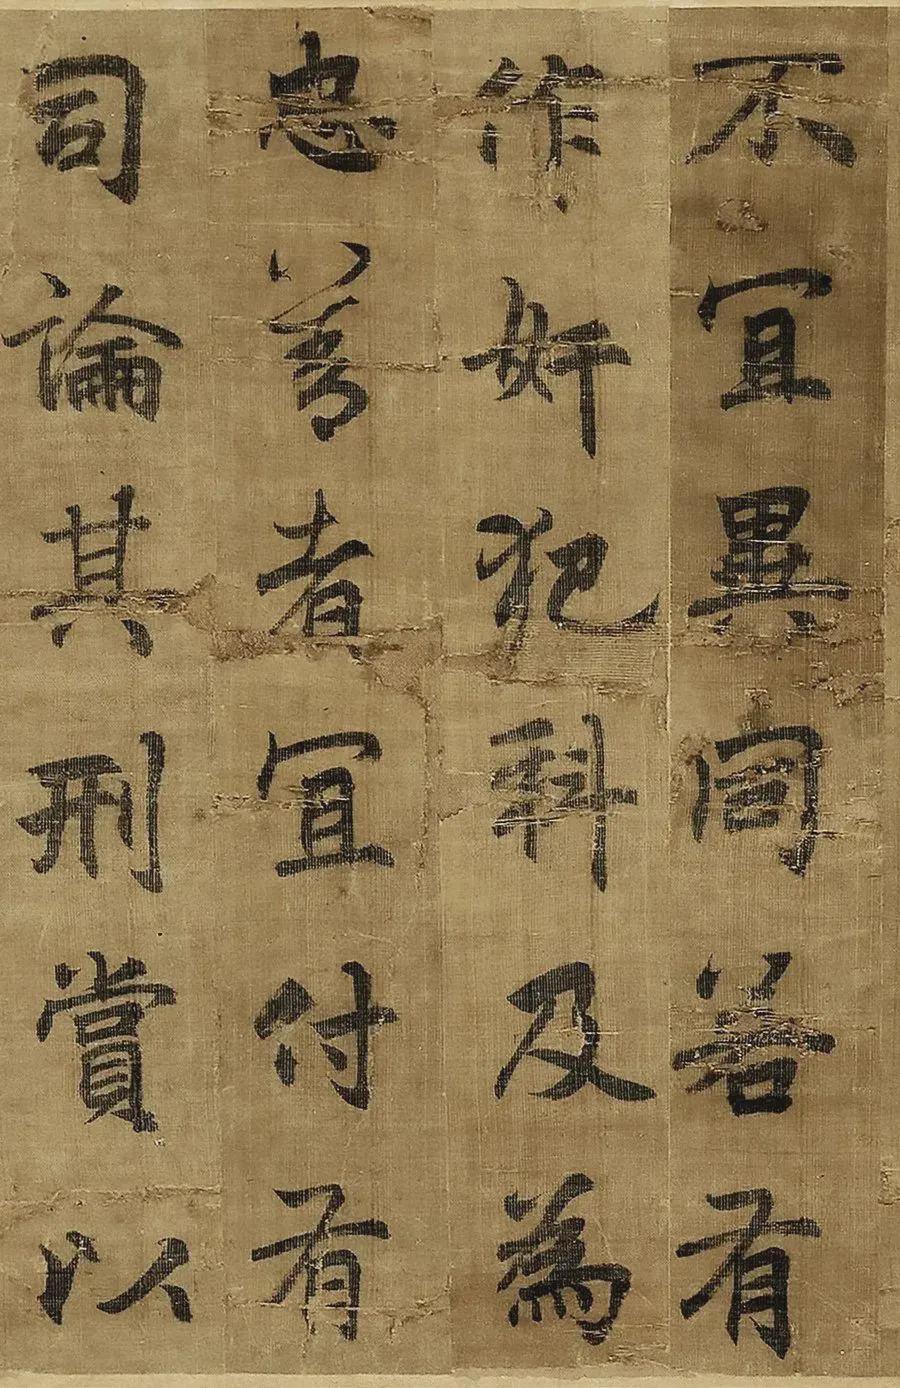 不宜異同若有
作奸犯科及為
忠善者宜付有
司論其刑賞以